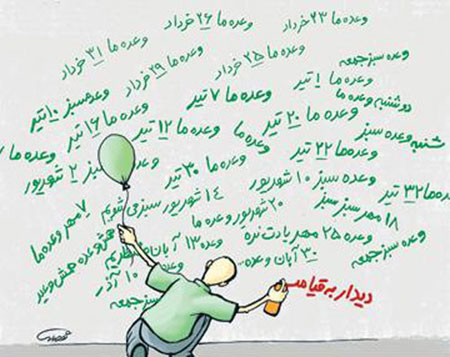 وعده ما ۲۳ خرداد
وعده ما ۲۶ خرداد
وعده ما ۳۱ خرداد
وعده ما ۲۵ خرداد
وعده سبز جمعه
وعده ما ۲۹ خرداد
وعده ما ۱ تیر
وعده ما ۷ تیر
وعده سبز ۱۰ تیر
دوشنبه وعده ما
وعده ما ۲۰ تیر
وعده ما ۱۲ تیر
وعده ما ۱۶ تیر
شنبه وعده سبز
وعده ما
وعده ما ۲۲ تیر
وعده ما ۳۰ تیر
سبز ۲ شهریور
وعده ما ۳۲ تیر
وعده سبز ۱۰ شهریور
۱۴ شهریور سبز می شویم
۱۸ مهر سبز سبز
۲۰ شهریور وعده ما
۷ مهر وعده ما
وعده سبز جمعه
وعده ۲۵ مهر یادت نره
وعده ۱۳ آبان
۳۰ آبان وعده...
وعده ۱۰ آذر
سبز جمعه
دیدار به قیامت